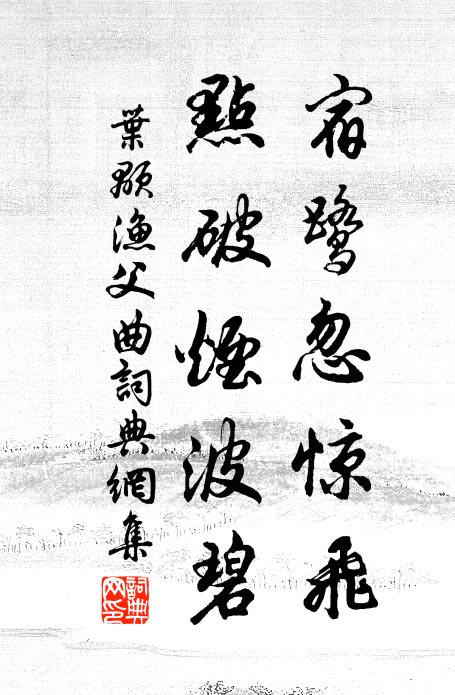 宿鷺忽惊飛
點破煙波碧
葉顒漁父曲詞典網集
詞典
网印